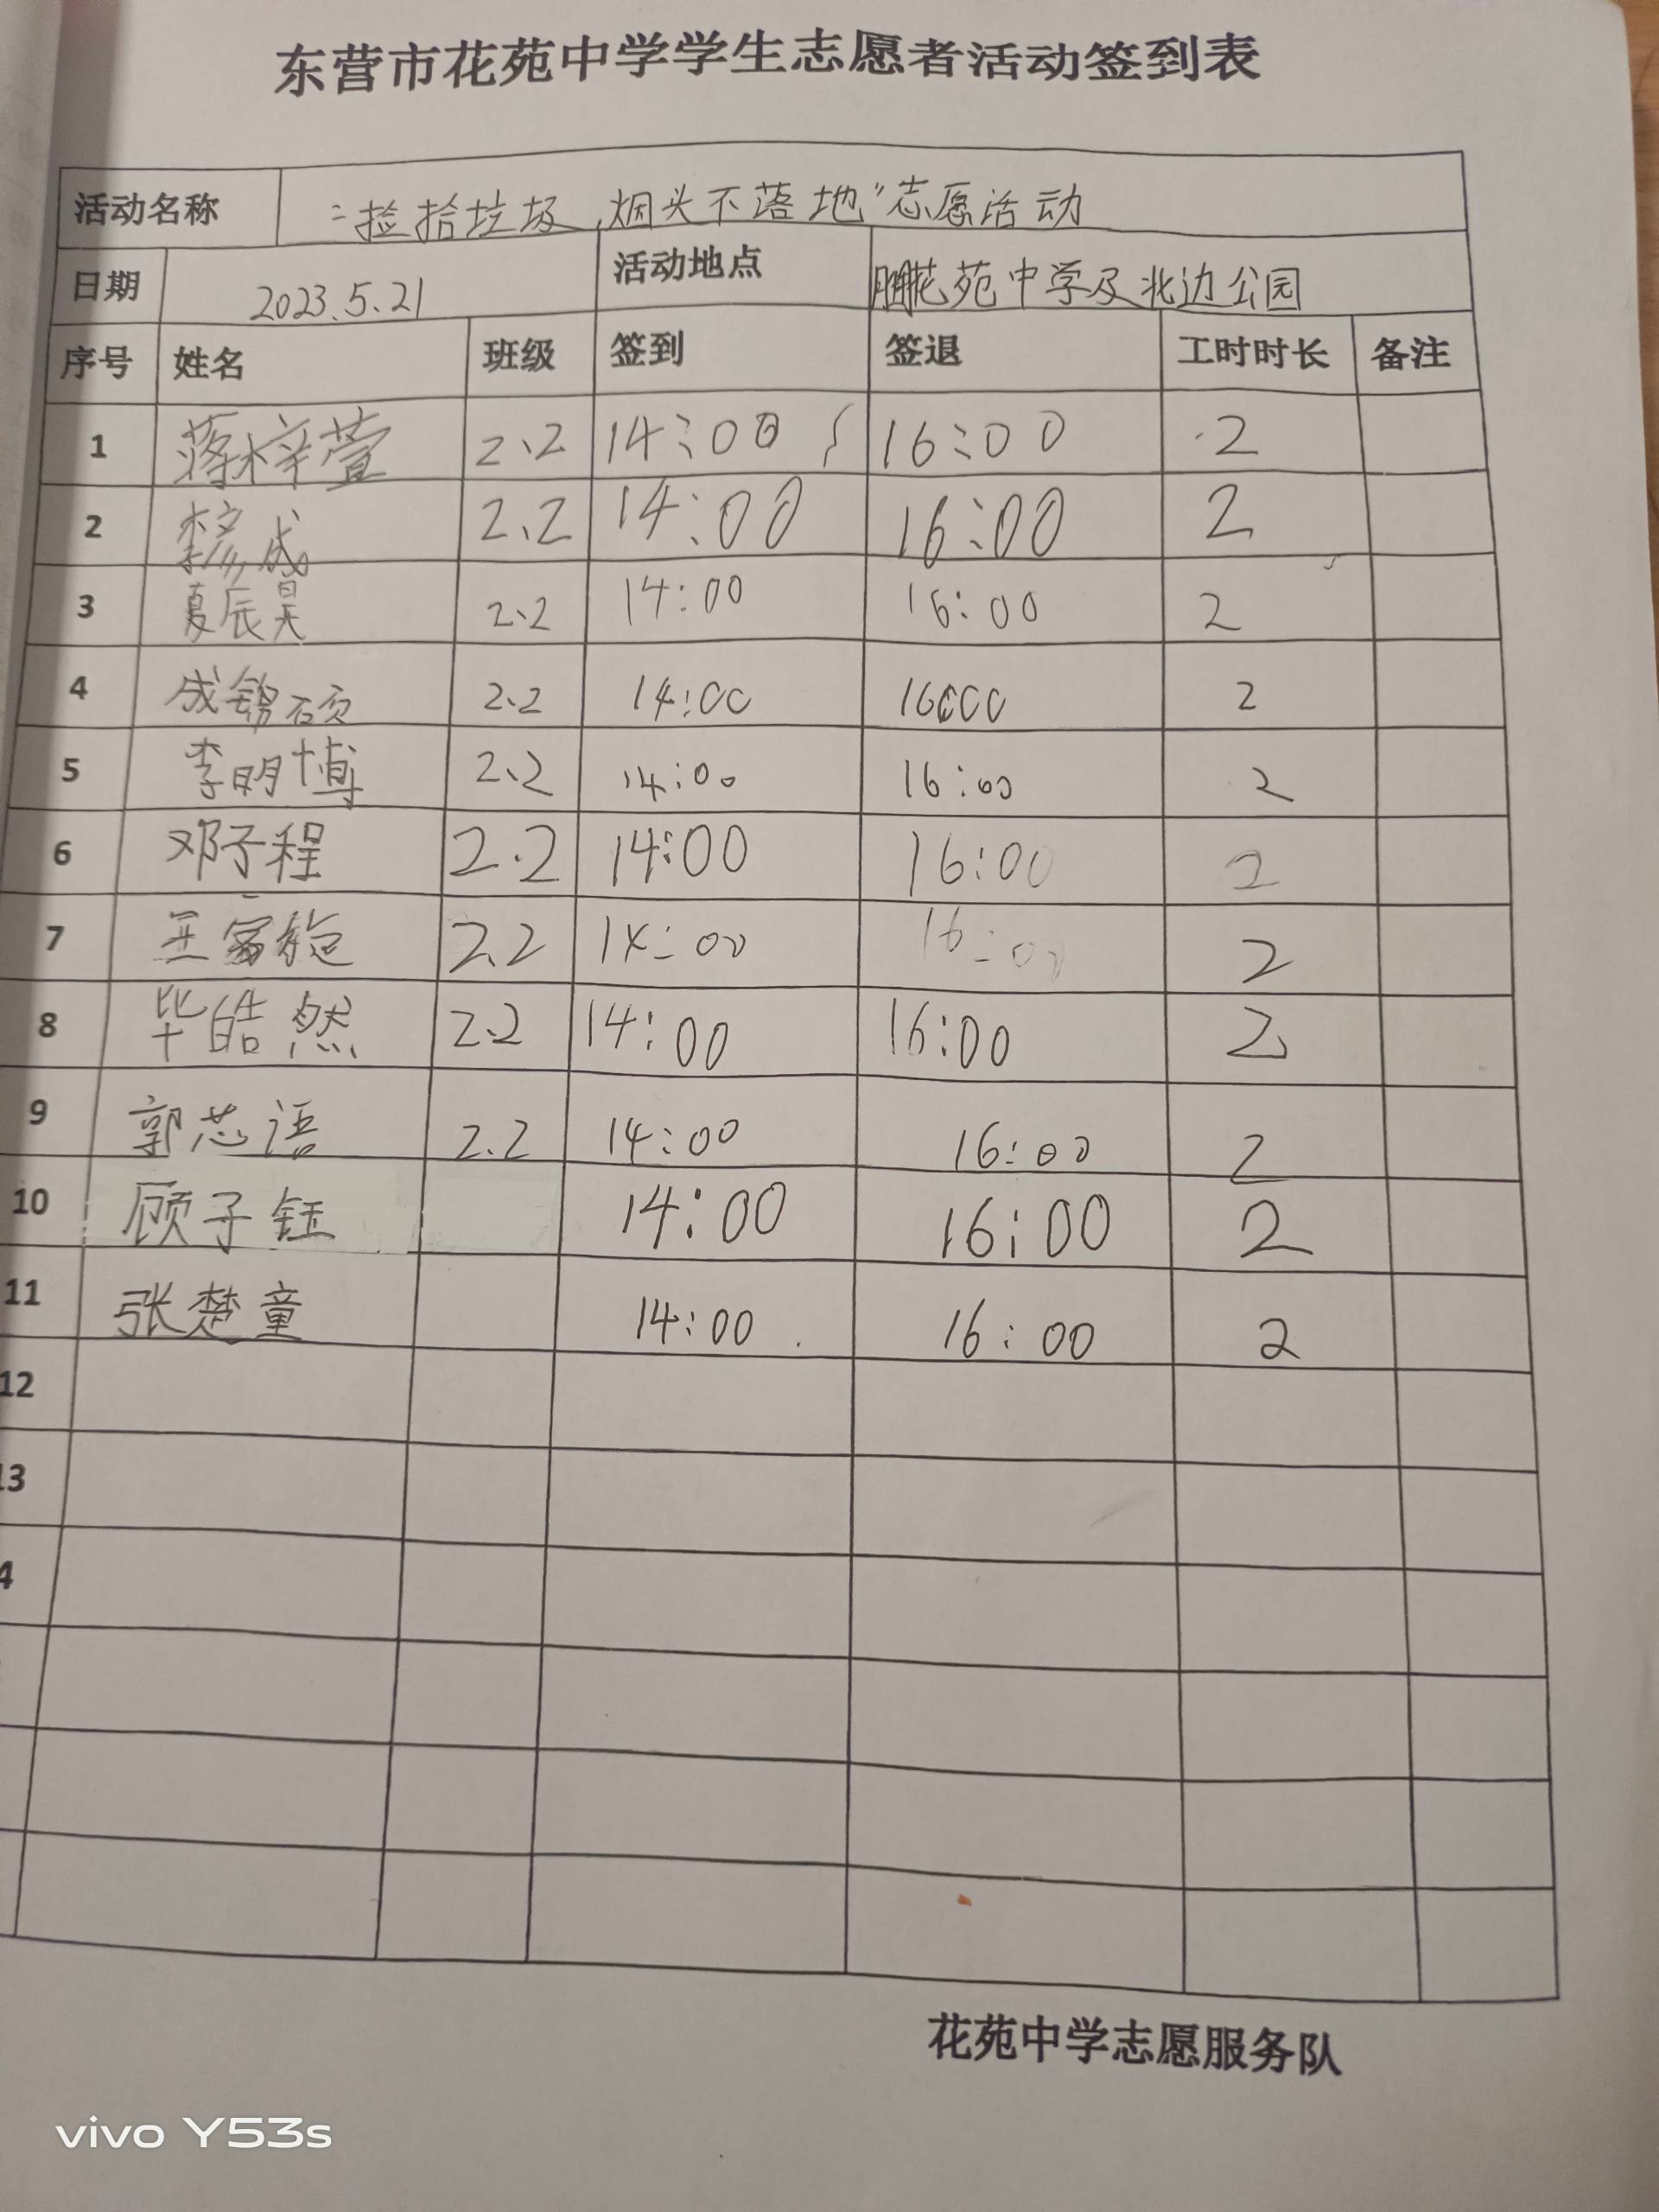 东营市花苑中学学生志愿者活动签到表
活动名称 "捡拾垃圾,烟头不落地"志愿活动
日期 2023.5.21 活动地点 花苑中学及北边公园
序号 姓名 班级 签到 签退 工时时长 备注
1 蒋梓萱 2.2 14:00 16:00 2
2 李彦成 2.2 14:00 16:00 2
3 夏辰昊 2.2 14:00 16:00 2
4 成锦硕 2.2 14:00 16:00 2
5 李明博 2.2 14:00 16:00 2
6 邓予程 2.2 14:00 16:00 2
7 王家 2.2 14:00 16:00 2
8 毕皓然 2.2 14:00 16:00 2
9 郭芯语 2.2 14:00 16:00 2
10 顾子钰 14:00 16:00 2
11 张楚童 14:00 16:00 2
12
13
4
花苑中学志愿服务队
vivo Y53s